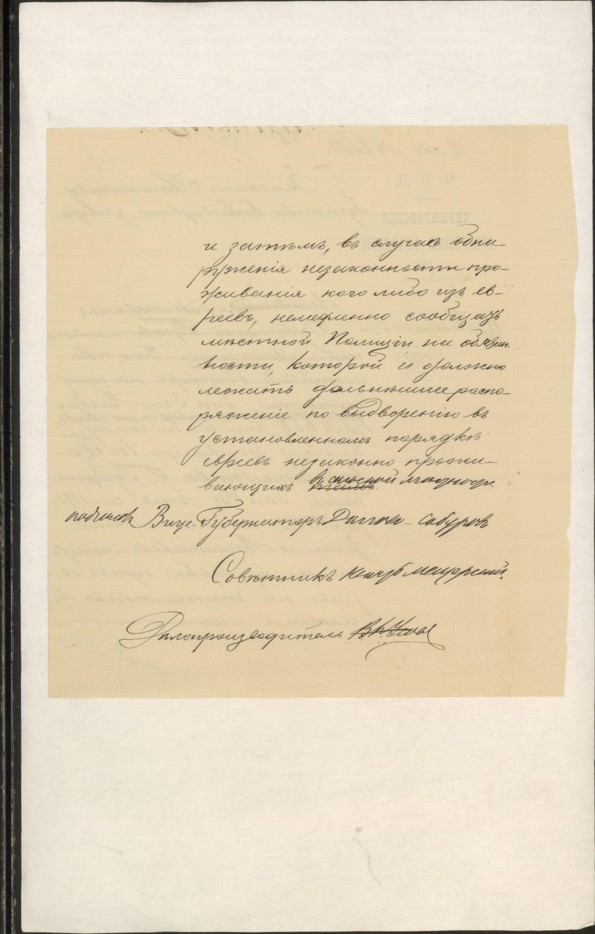 и затѣмъ, въ случаѣ обна-
руженія незаконности про-
живанія кого либо изъ ев-
реевъ, немедленно сообщать
мѣстной Полиціи на обязан-
ности, которой и должно
лежать дальнѣйшее распо-
ряженіе по выдворенію въ
установленномъ порядкѣ
евреевъ незаконно прожи-
вающихъ въ
Вице-Губернаторъ Сабуровъ
Совѣтникъ Мещерскій.
Дѣлопроизводитель